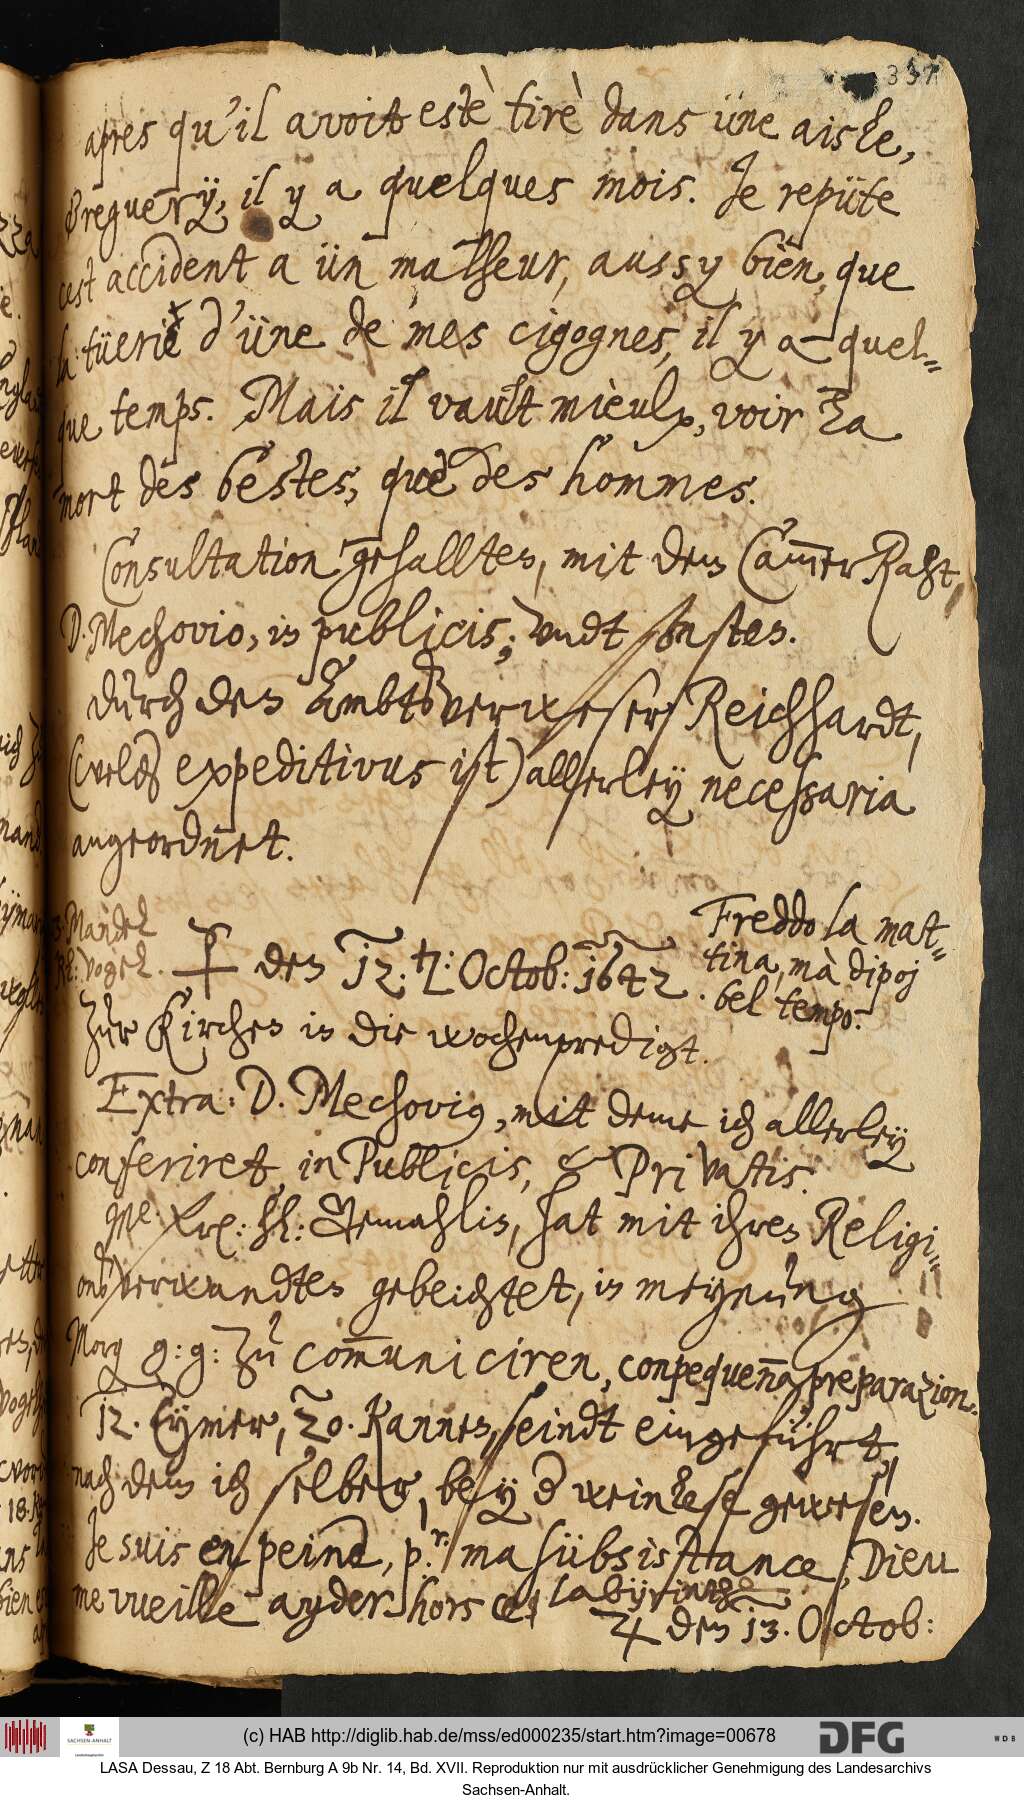 337
apres qu'il avoit estè tirè dans üne aisle,
Breguerÿ, il y a quelques mois. Je repüte
cest accident a ün malheur, aussy bien, que
la tüerie d'üne de mes cigognes, il y a quel=
que temps. Mais il vault mieulx, voir la
mort des bestes, que des hommes.
Consultation gehallten, mit dem Cammer Raht,
D. Mechovio, in publicis, undt sonsten.
durch den Ambtsverweser Reichhardt,
(welcher expeditivus ist) allerley necessaria
angeordnet.
3 Mandel
kl: Vogel.
den 12. Octob: 1642.
Freddo la mat=
tina, mà dipoj
bel tempo.
Zur Kirchen in die wochenpredigt.
Extra: D. Mechovius, mit deme ich allerley
conferiret, in Publicis, et Privatis.
hat mit ihren Religi=
onsverwandten gebeichtet, in meynung
Morgen g: g: zu communiciren, con pequeña preparazion.
12. Eymer, 20. Kannen, seindt eingeführt,
nach dem ich selber, bey der weinlese gewesen.
Je suis en peine, pr. ma sübsistance, Dieu
me vueille ayder hors ce labÿrinthe
♃ den 13. Octob:
(c) HAB http://diglib.hab.de/mss/ed000235/start.htm?image=00678
SACHSEN-ANHALT
DFG
WDB
LASA Dessau, Z 18 Abt. Bernburg A 9b Nr. 14, Bd. XVII. Reproduktion nur mit ausdrücklicher Genehmigung des Landesarchivs
Sachsen-Anhalt.